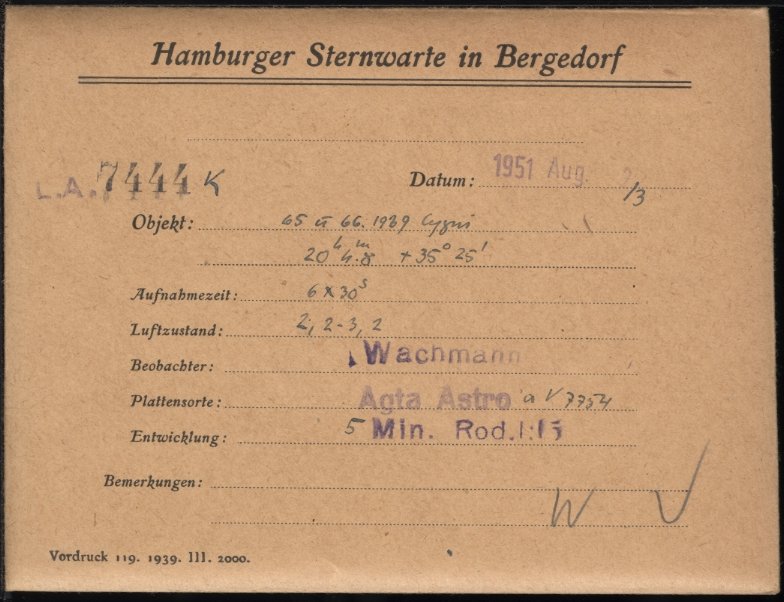 Hamburger Sternwarte in Bergedorf
L.A. 7444 K
Datum: 1951 Aug. 2/3
Objekt: 65 u 66.1939 Cygni
20h 4m.8 +35° 25'
Aufnahmezeit: 6 x 30s
Luftzustand: 2, 2-3, 2
Beobachter: Wachmann
Plattensorte: Agfa Astro a V 7754
Entwicklung: 5 Min. Rod. 1:15
Bemerkungen:
W V
Vordruck 119. 1939. III. 2000.